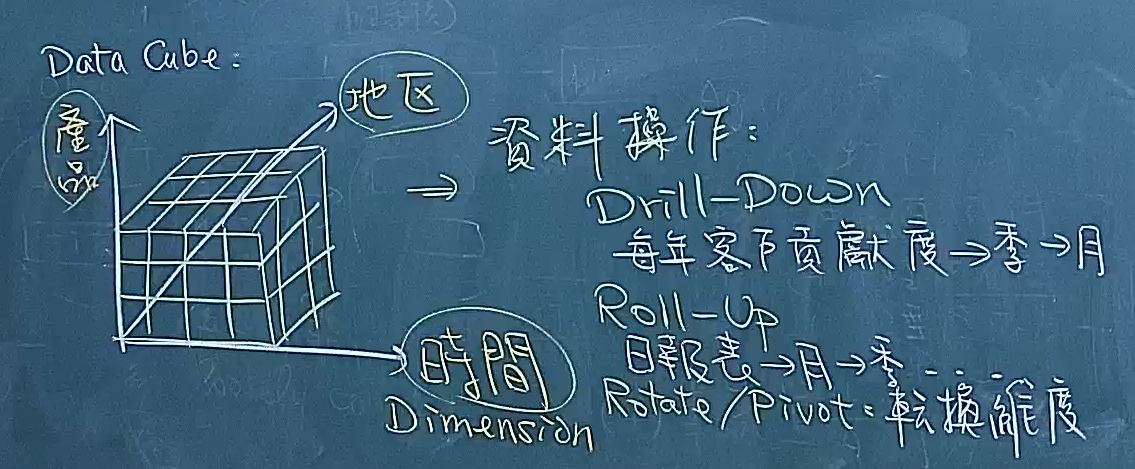 Data Cube:
產品
地区
時間
Dimension
→ 資料操作:
Drill-Down
每年客戶貢獻度→季→月
Roll-Up
日報表→月→季....
Rotate/Pivot:転換維度